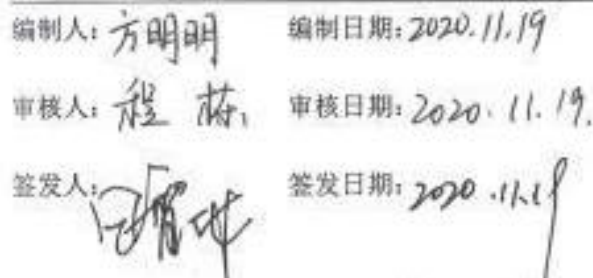 编制人：方明明 编制日期：2020.11.19
审核人：程栋 审核日期：2020.11.19.
签发人： 签发日期：2020.11.19